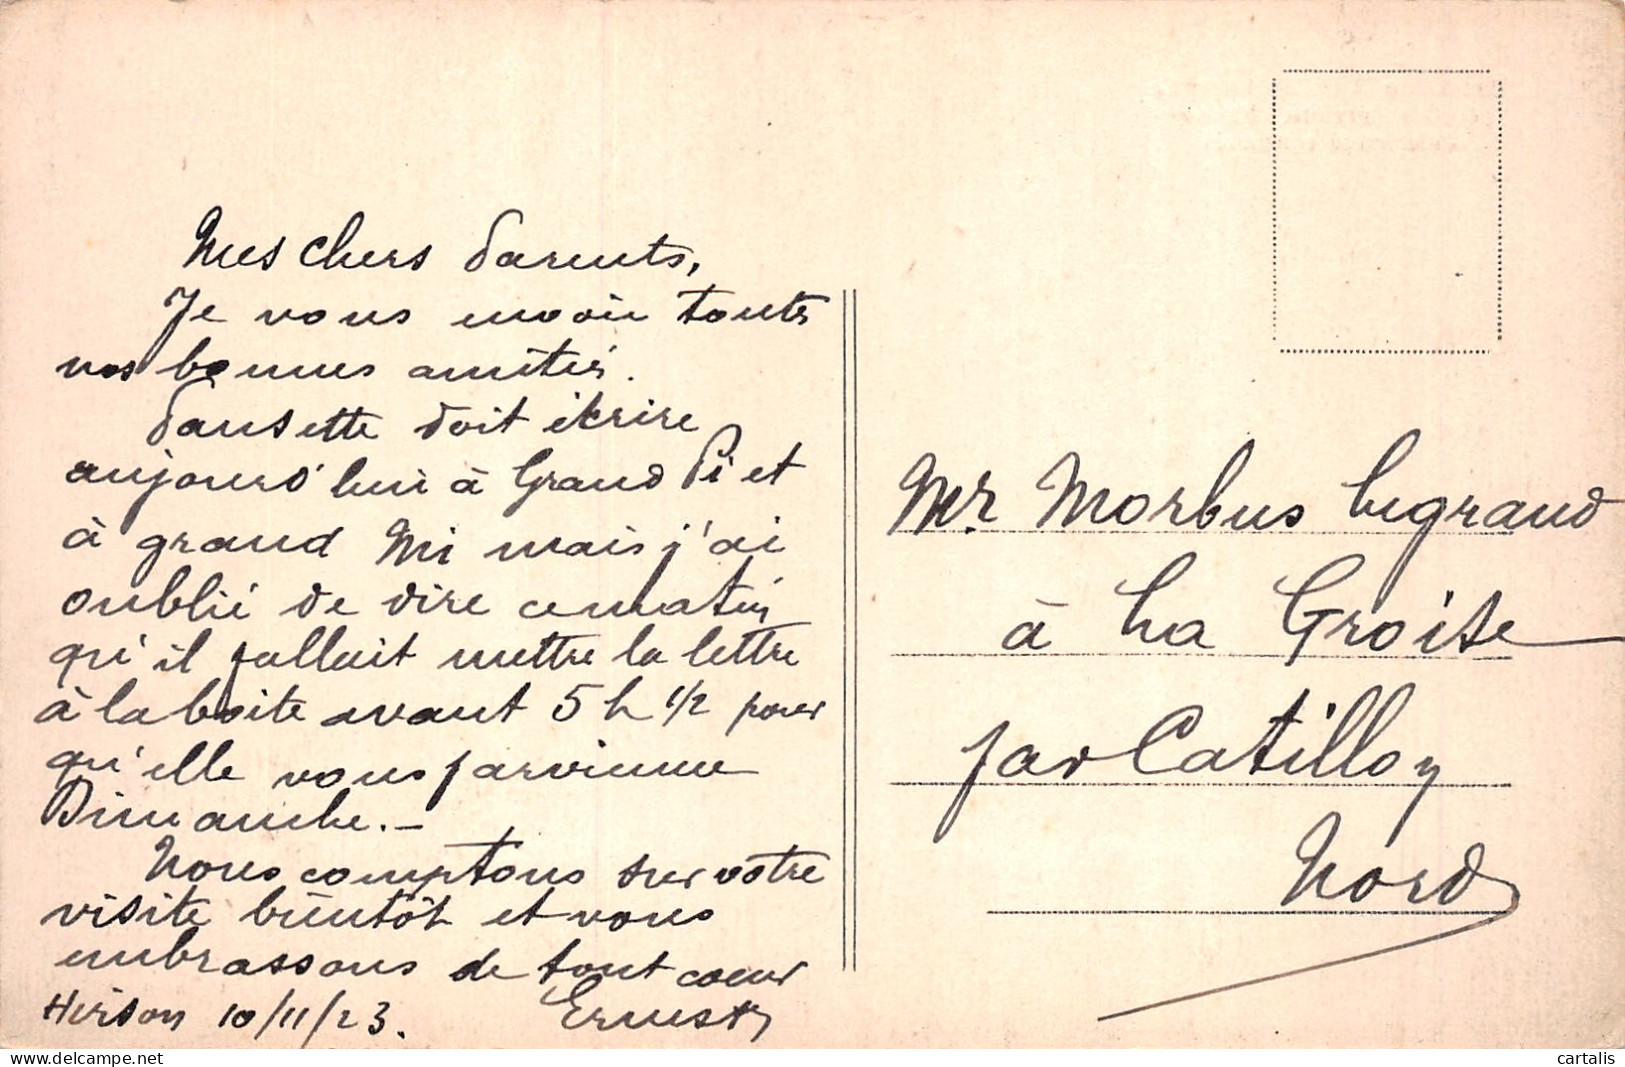 Mes chers Parents,
Je vous envoie toutes
vos bonnes amitiés.
Pansette doit écrire
aujourd'hui à Grand Pi et
à grand Mi mais j'ai
oublié de dire ce matin
qu'il fallait mettre la lettre
à la boite avant 5 h 1/2 pour
qu'elle vous parvienne
Dimanche. -
Nous comptons sur votre
visite bientôt et vous
embrassons de tout coeur
Hirson 10/11/23. Ernest
Mr Morbus Legrand
à La Groise
par Catillon
Nord
cartalis
delcampe.net